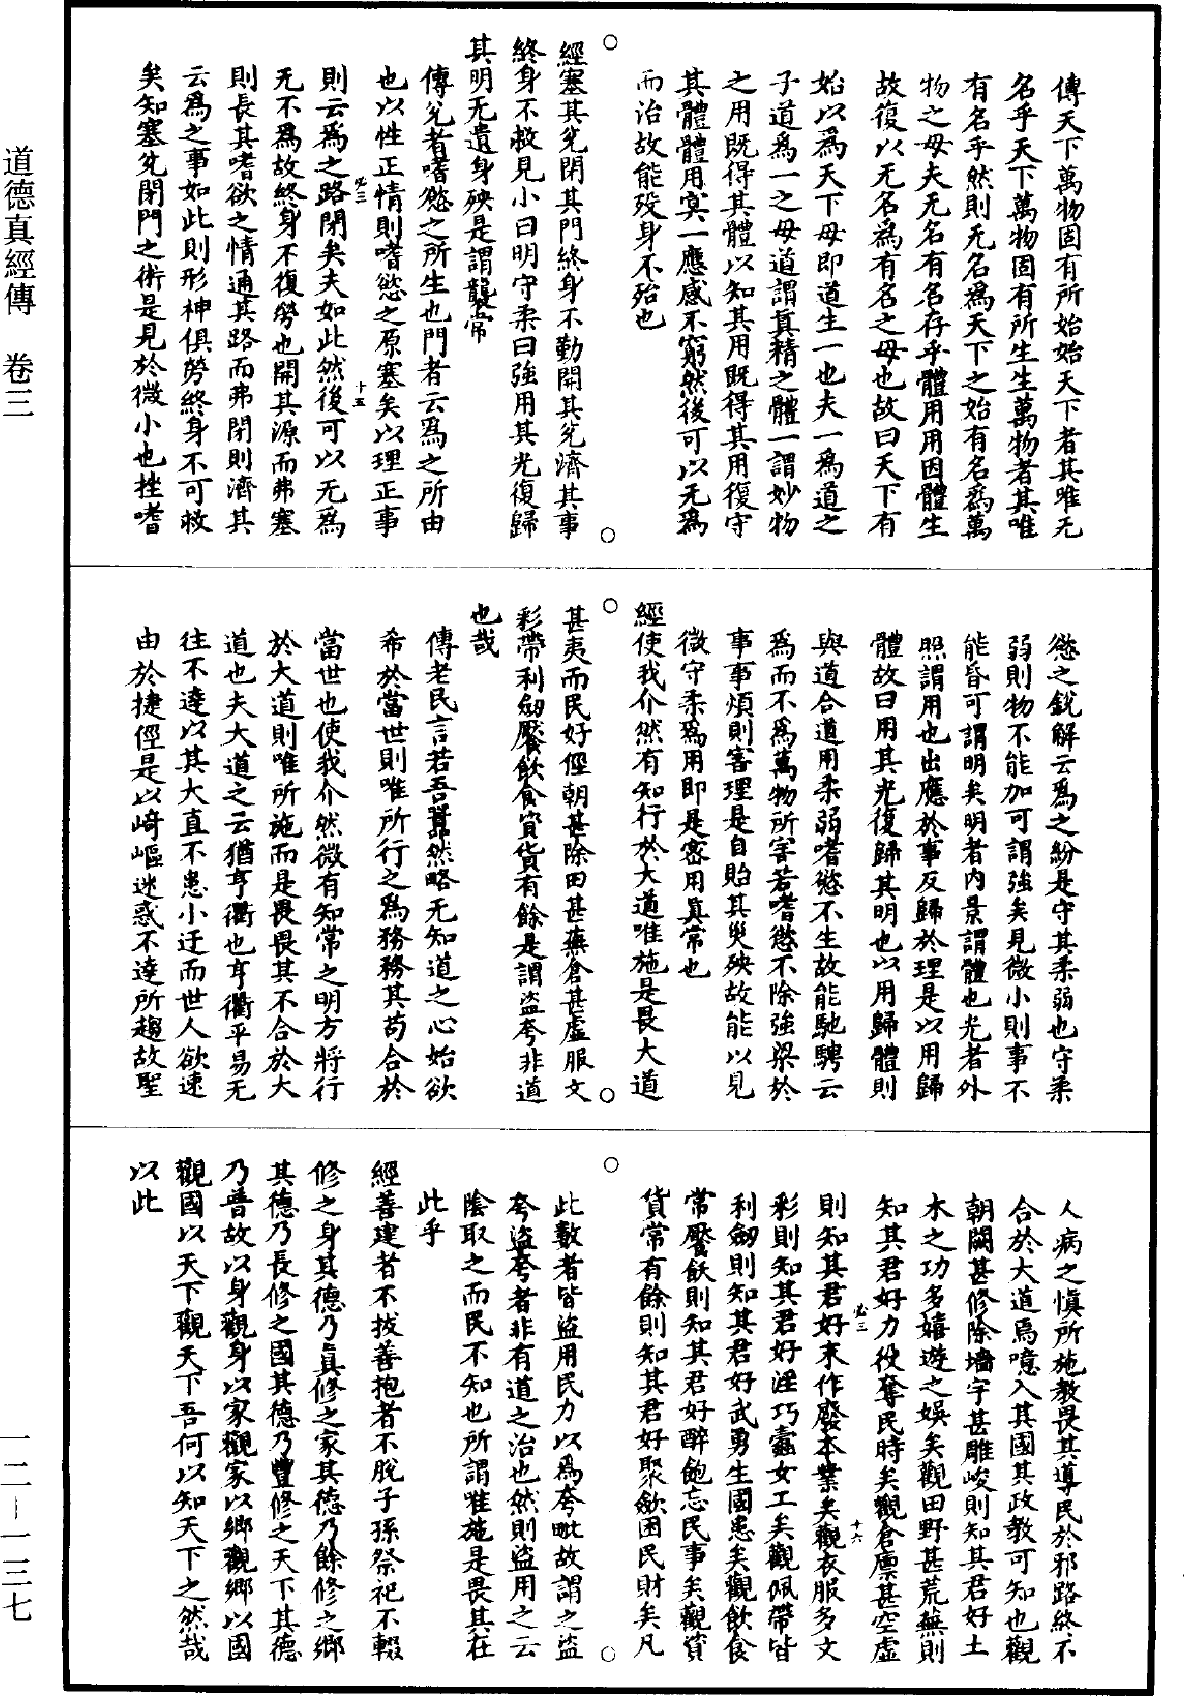 傳天下萬物固有所始始天下者其唯无
名乎天下萬物固有所生生萬物者其唯
有名乎然則无名爲天下之始有名爲萬
物之母夫无名有名存乎體用用因體生
故復以无名爲有名之母也故曰天下有
始以爲天下母即道生一也夫一爲道之
子道爲一之母道謂真精之體一謂妙物
之用既得其體以知其用既得其用復守
其體體用冥一應感不窮然後可以无爲
而治故能歿身不殆也
經塞其兌閉其門終身不勤開其兌濟其事
終身不救見小曰明守柔曰強用其光復歸
其明无遺身殃是謂襲常
傳兌者嗜慾之所生也門者云爲之所由
也以性正情則嗜慾之原塞矣以理正事
必三 十五
則云爲之路閉矣夫如此然後可以无爲
无不爲故終身不復勞也開其源而弗塞
則長其嗜欲之情通其路而弗閉則濟其
云爲之事如此則形神俱勞終身不可救
矣知塞兌閉門之術是見於微小也挫嗜
慾之銳解云爲之紛是守其柔弱也守柔
弱則物不能加可謂強矣見微小則事不
能昏可謂明矣明者内景謂體也光者外
照謂用也出應於事反歸於理是以用歸
體故曰用其光復歸其明也以用歸體則
與道合道用柔弱嗜慾不生故能馳騁云
爲而不爲萬物所害若嗜慾不除強梁於
事事煩則害理是自貽其災殃故能以見
微守柔爲用即是密用真常也
經使我介然有知行於大道唯施是畏大道
甚夷而民好徑朝甚除田甚蕪倉甚虛服文
彩帶利劒饜飲食資貨有餘是謂盗夸非道
也哉
傳老氏言若吾嚚然略无知道之心始欲
希於當世則唯所行之爲務務其苟合於
當世也使我介然微有知常之明方將行
於大道則唯所施而是畏畏其不合於大
道也夫大道之云猶亨衢也亨衢平易无
往不達以其大直不患小迂而世人欲速
由於捷徑是以崎嶇迷惑不達所趨故聖
人病之慎所施教畏其導民於邪路終不
合於大道焉噫入其國其政教可知也觀
朝闕甚修除墻宇甚雕峻則知其君好土
木之功多嬉遊之娛矣觀田野甚荒蕪則
知其君好力役奪民時矣觀倉廪甚空虛
必三 十六
則知其君好末作廢本業矣觀衣服多文
彩則知其君好淫巧蠹女工矣觀佩帶皆
利劒則知其君好武勇生國患矣觀飲食
常饜飫則知其君好醉飽忘民事矣觀資
貨常有餘則知其君好聚歛困民財矣凡
此數者皆盗用民力以爲夸毗故謂之盗
夸盗夸者非有道之治也然則盗用之云
陰取之而民不知也所謂唯施是畏其在
此乎
經善建者不拔善抱者不脫子孫祭祀不輟
修之身其德乃真修之家其德乃餘修之鄉
其德乃長修之國其德乃豐修之天下其德
乃普故以身觀身以家觀家以鄉觀鄉以國
觀國以天下觀天下吾何以知天下之然哉
以此
道德真經傳 卷三
一二—一三七